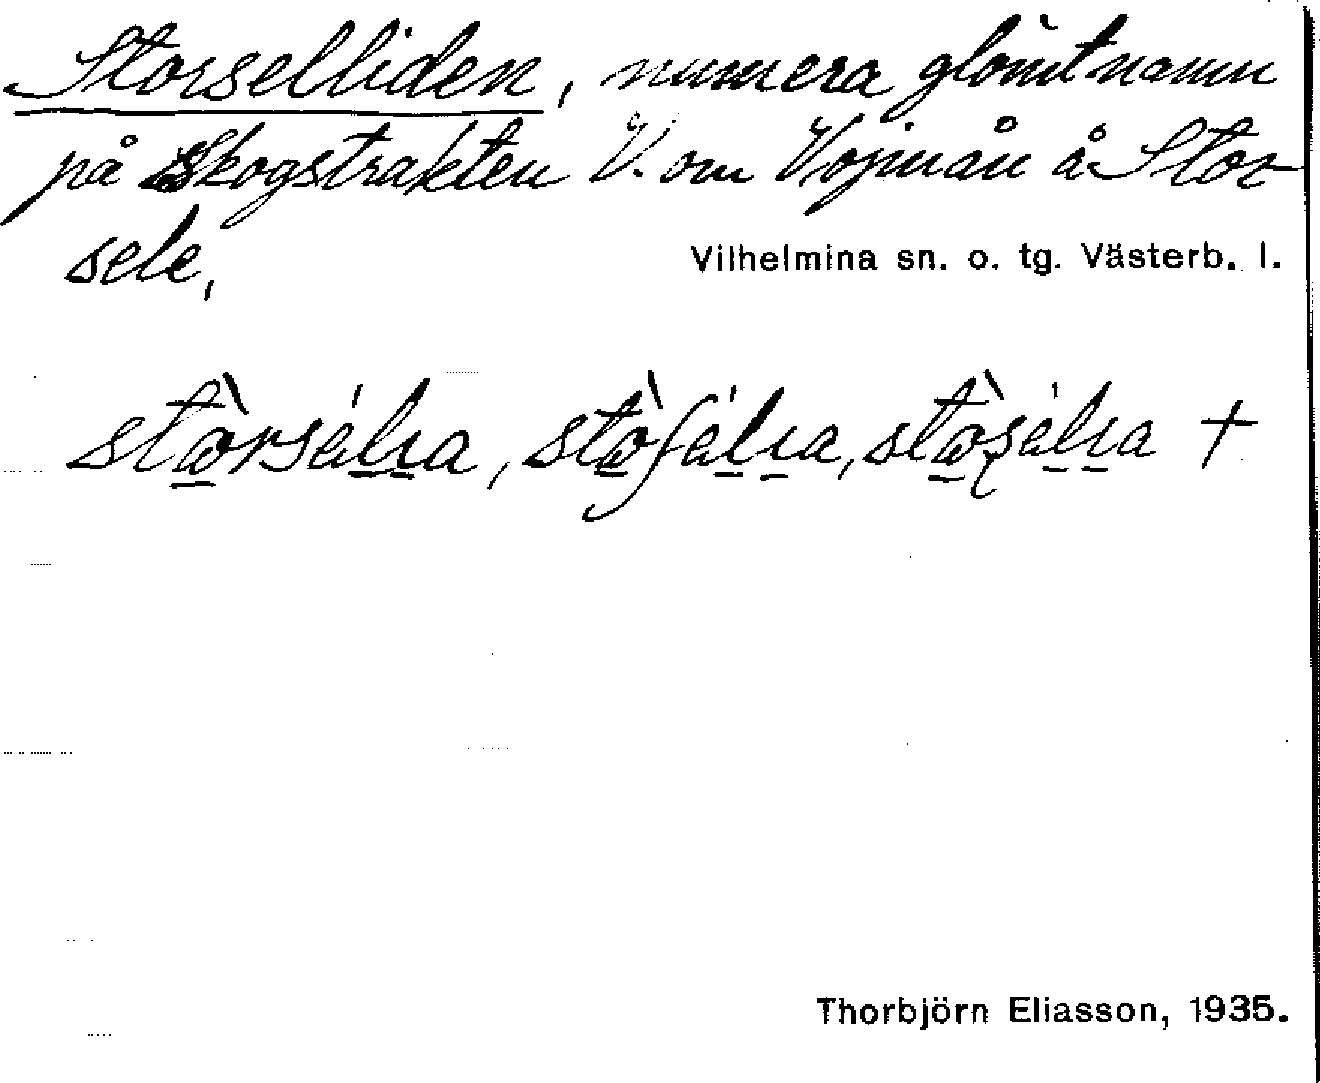 Storselliden, numera glömt namn
på skogstrakten V. om Vojmån å Stor-
sele,
Vilhelmina sn. o. tg. Västerb. l.
Thorbjörn Eliasson, 1935.